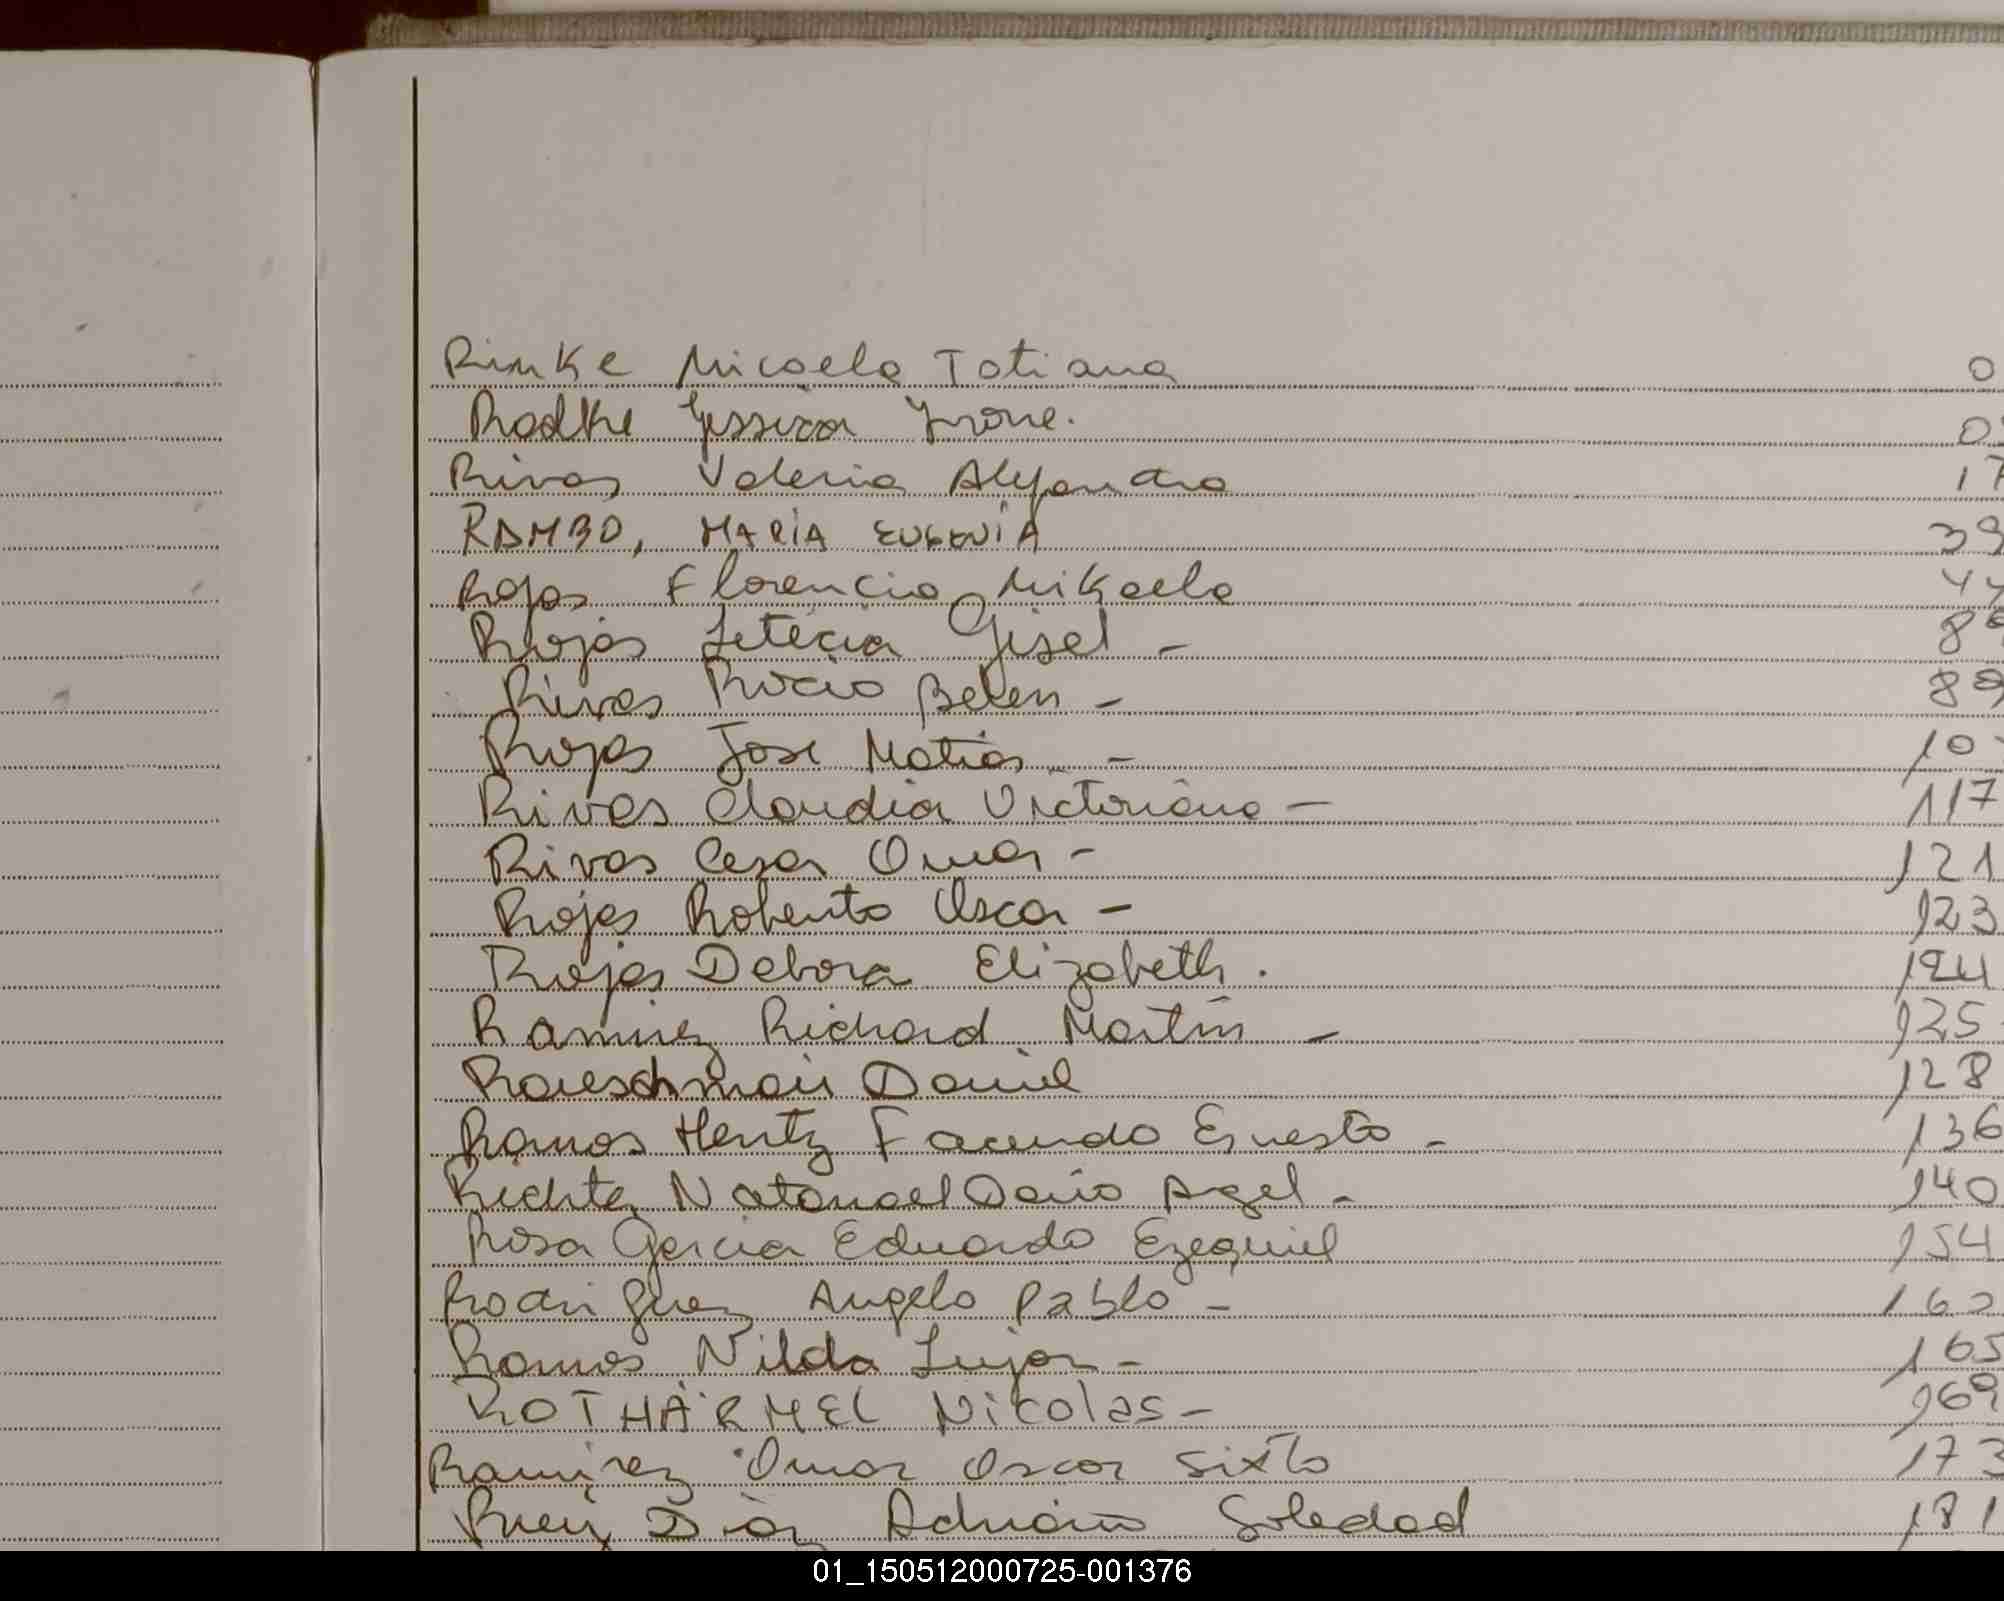 Rinke Micaela Tatiana 0
Radke Yessica Ivone. 0
Rivas Valeria Alejandra 17
RAMBO, MARIA EUGENIA 39
Rojas Florencia Mikaela 44
Rojas Leticia Gisel - 89
Rivas Rocio Belen - 89
Rojas Jose Matias - 10
Rivas Claudia Victoriana - 117
Rivas Cesar Omar - 121
Rojas Roberto Oscar - 123
Rojas Debora Elizabeth. 124
Ramirez Richard Martin - 125
Daniel 128
Ramos Hentz Facundo Ernesto - 136
Richter Natanael Dario Angel - 140
Rosa Garcia Eduardo Ezequiel 154
Rodriguez Angelo Pablo - 162
Ramos Nilda Lujan - 165
ROTHARMEL Nicolas - 169
Ramirez Omar Oscar Sixto 173
Diaz Adriana Soledad 181
01_150512000725-001376